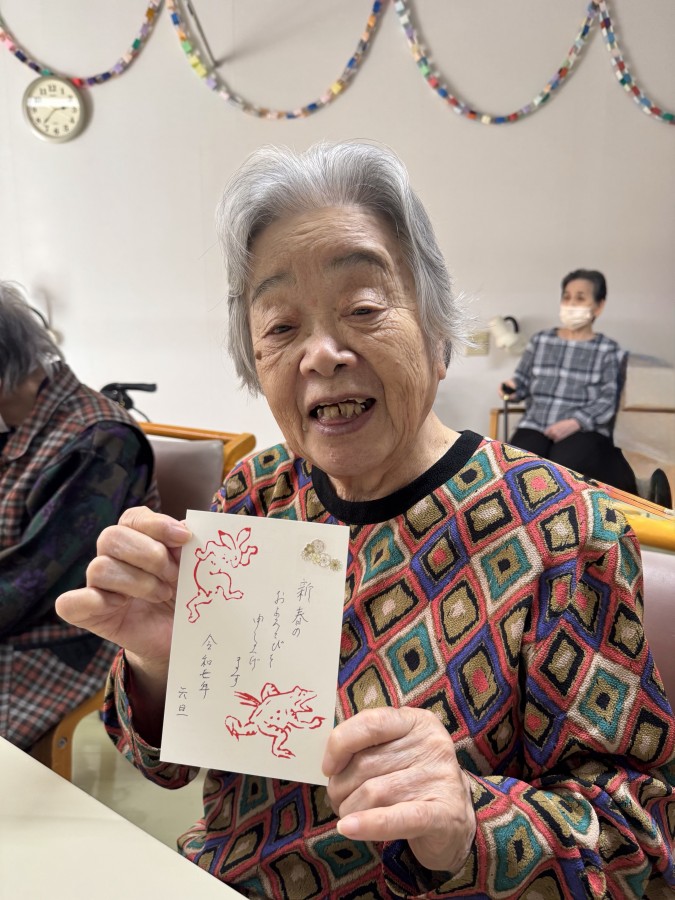 新春の
およろこびを
申し上げ
ます
令和七年
元旦